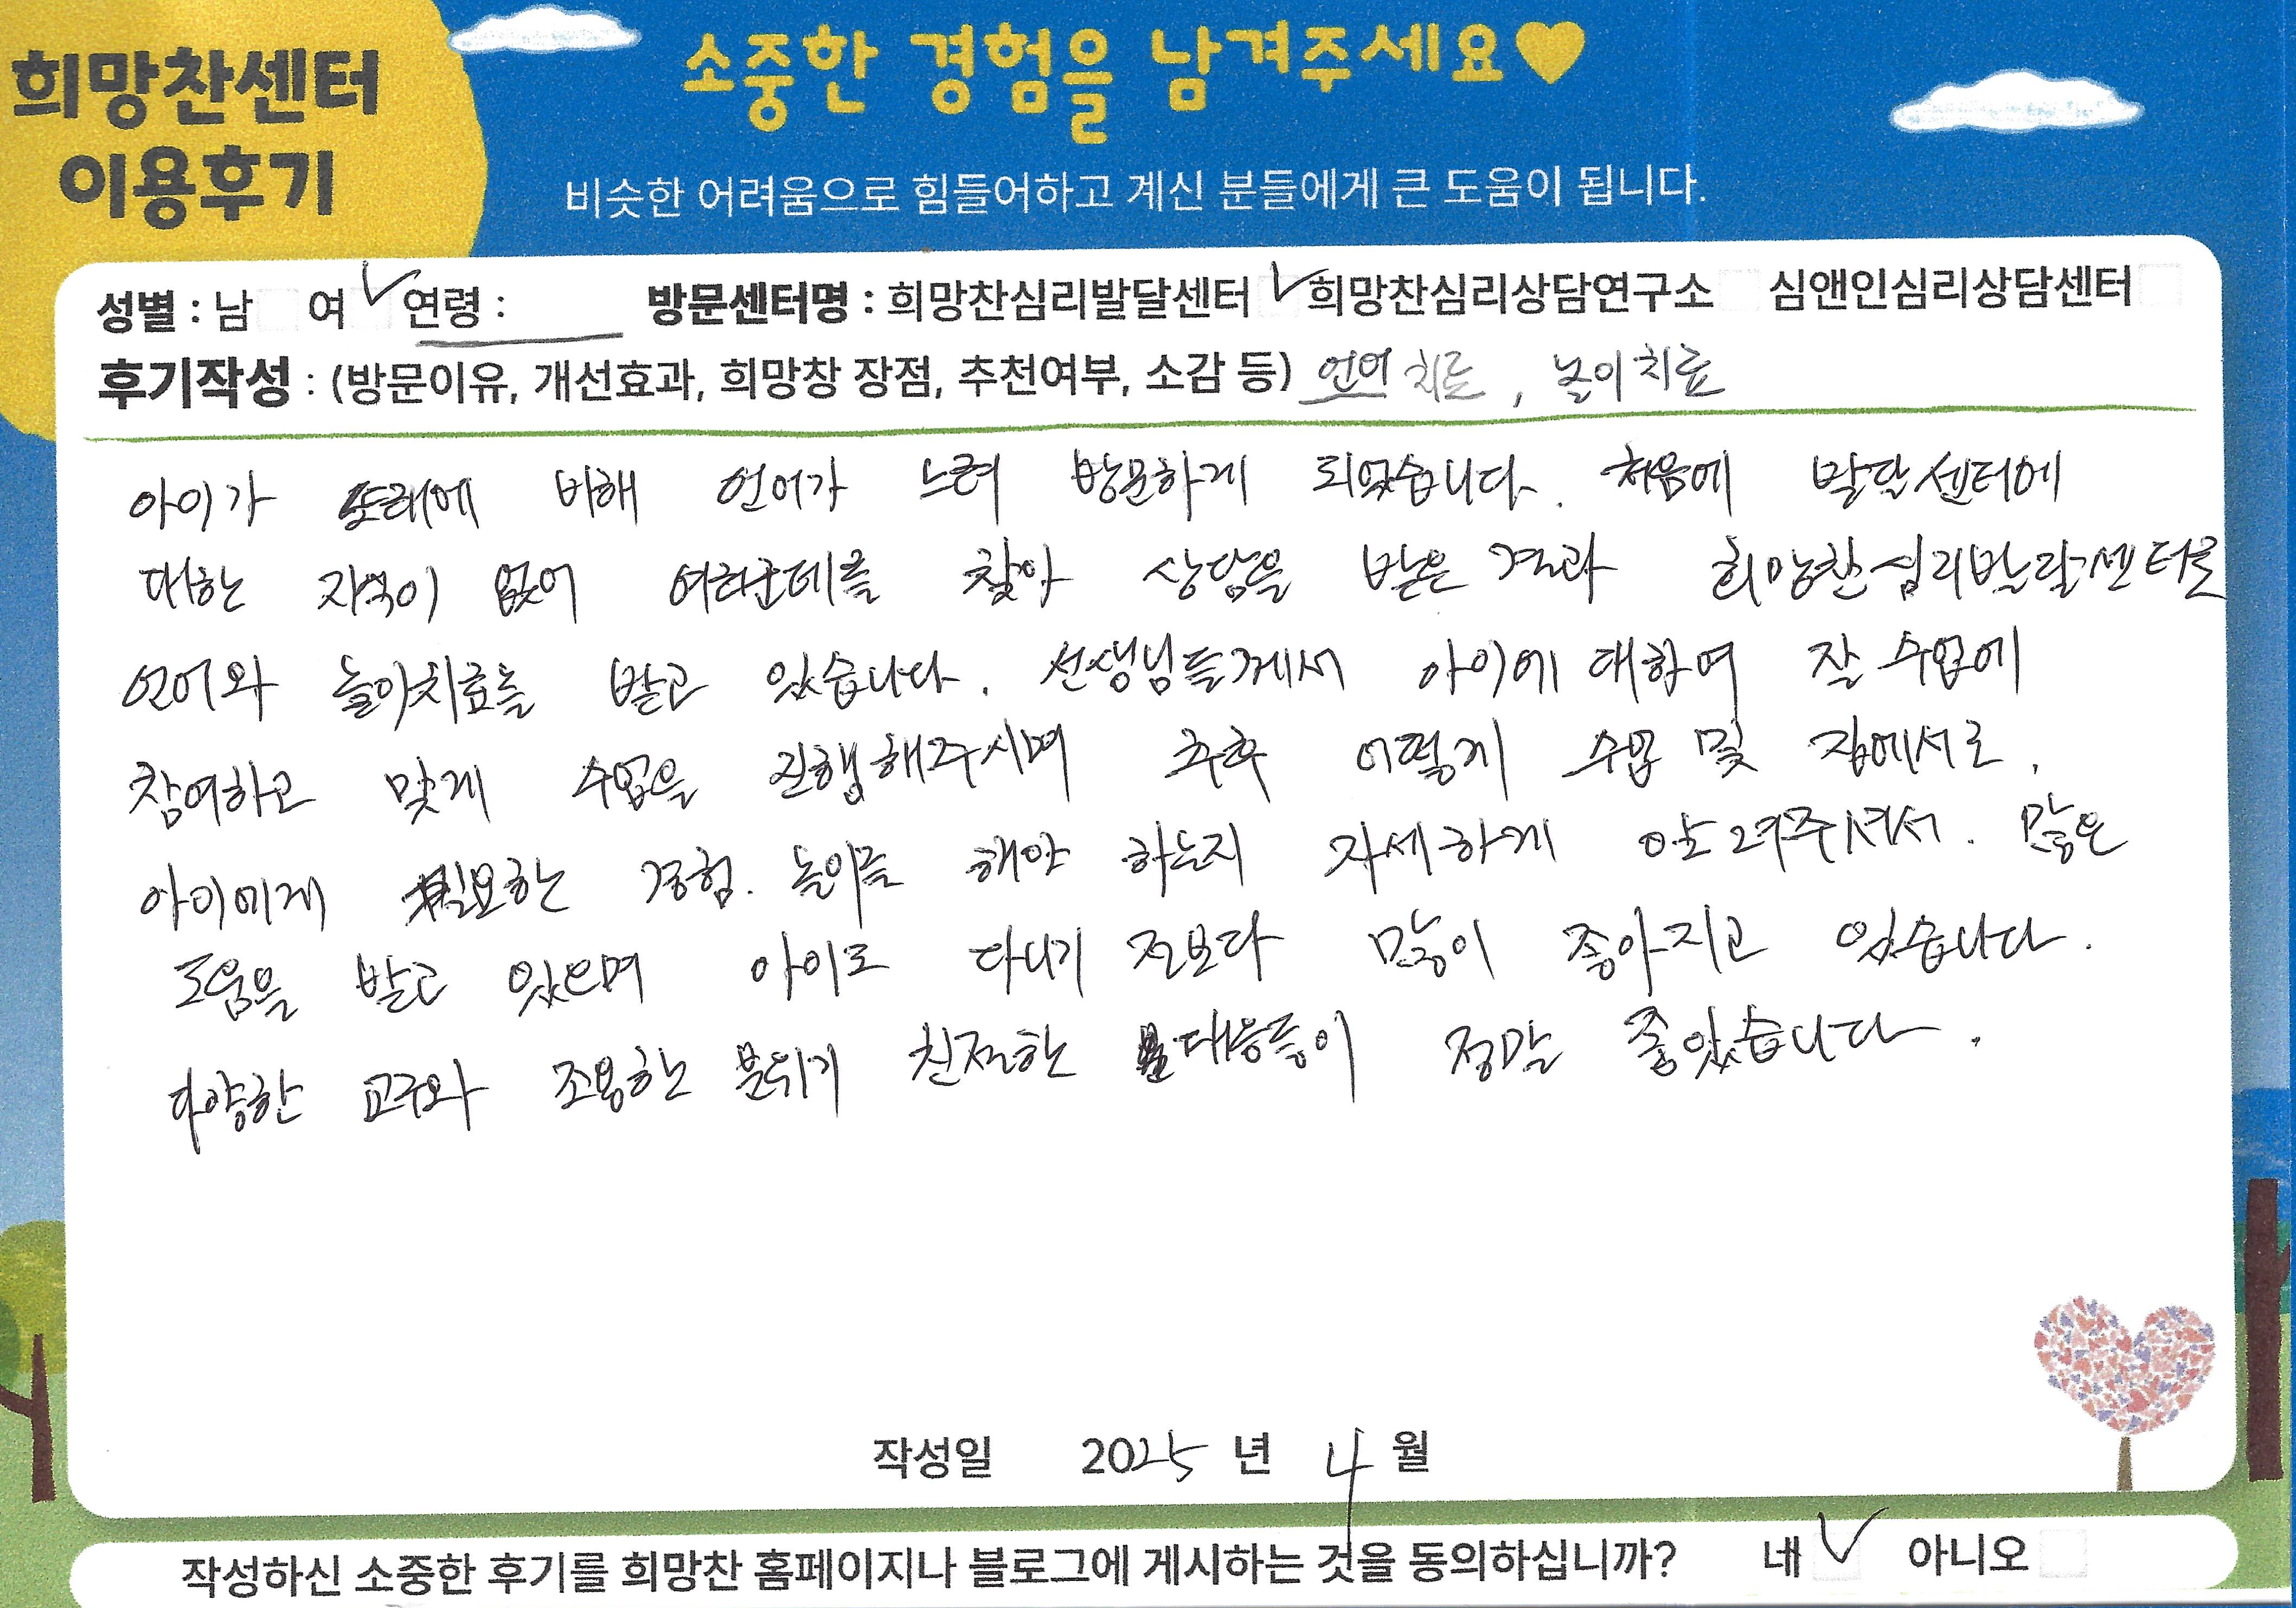 희망찬센터
이용후기
소중한 경험을 남겨주세요♥
비슷한 어려움으로 힘들어하고 계신 분들에게 큰 도움이 됩니다.
성별 : 남 여 ✓ 연령 : 방문센터명 : 희망찬심리발달센터 ✓ 희망찬심리상담연구소 심앤인심리상담센터
후기작성 : (방문이유, 개선효과, 희망창 장점, 추천여부, 소감 등) 언어 치료, 놀이치료
아이가 또래에 비해 언어가 느려 방문하게 되었습니다. 처음에 발달센터에
대한 지식이 없어 여러군데를 찾아 상담을 받은 결과 희망찬심리발달센터로
언어와 놀이치료를 받고 있습니다. 선생님들께서 아이에 대하여 잘 수업에
참여하고 맞게 수업을 진행해주시며 추후 어떻게 수업 및 집에서도,
아이에게 필요한 경험. 놀이를 해야 하는지 자세하게 알려주셔서. 많은
도움을 받고 있으며 아이도 다니기 전보다 많이 좋아지고 있습니다.
다양한 교구와 조용한 분위기 친절한 대응들이 정말 좋았습니다.
작성일 2025 년 4 월
작성하신 소중한 후기를 희망찬 홈페이지나 블로그에 게시하는 것을 동의하십니까? 네 ✓ 아니오